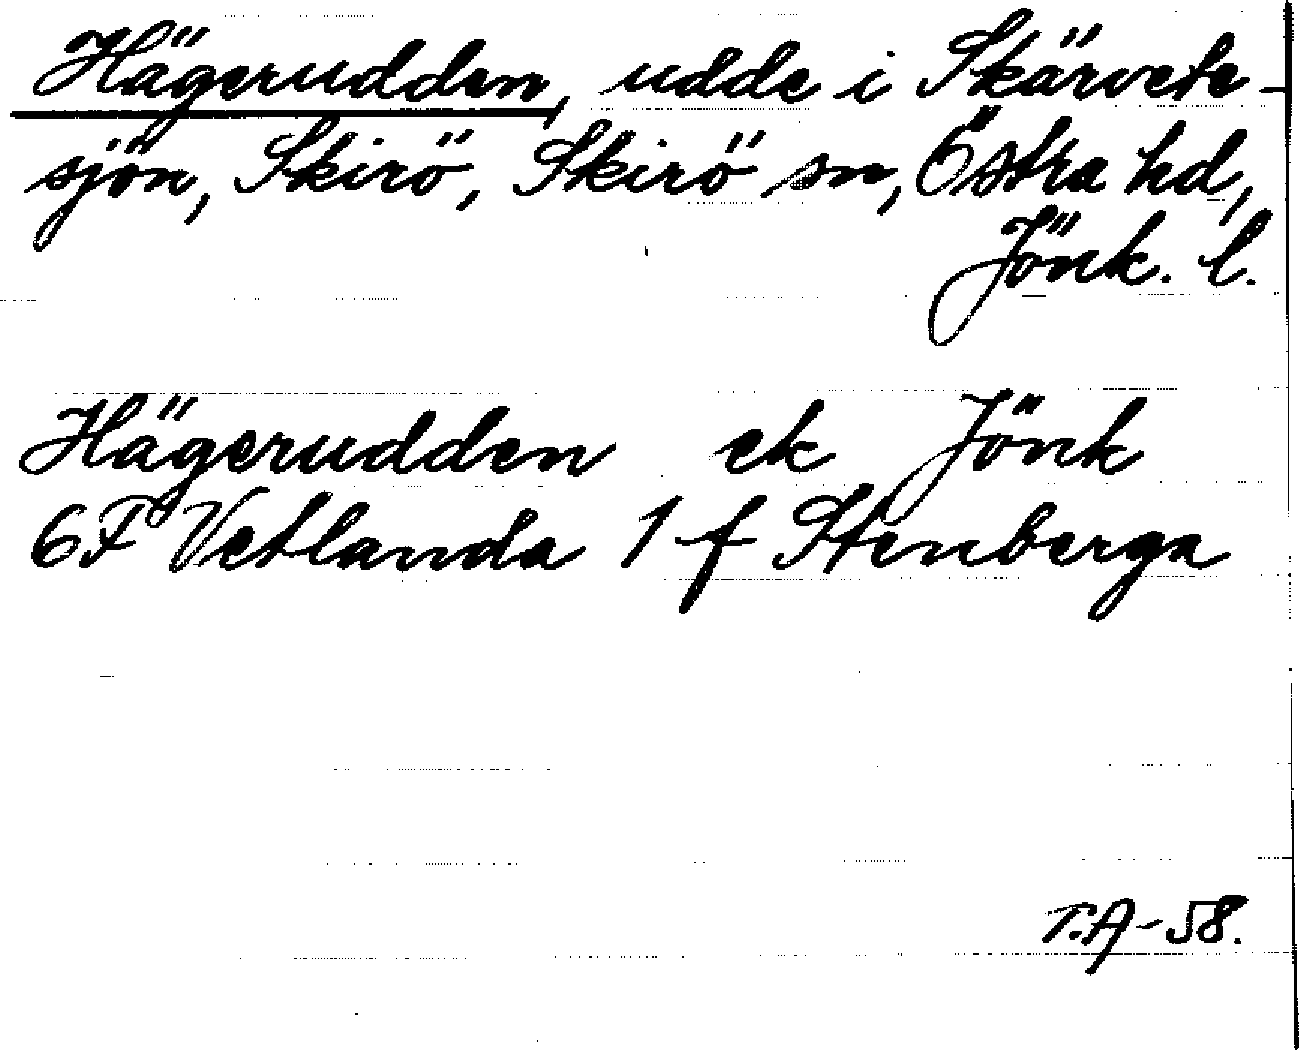 Hägerudden, udde i Skärvete-
sjön, Skirö, Skirö sn, Östra hd,
Jönk. l.
Hägerudden ek Jönk
6F Vetlanda 1 f Stenberga
T.A-58.